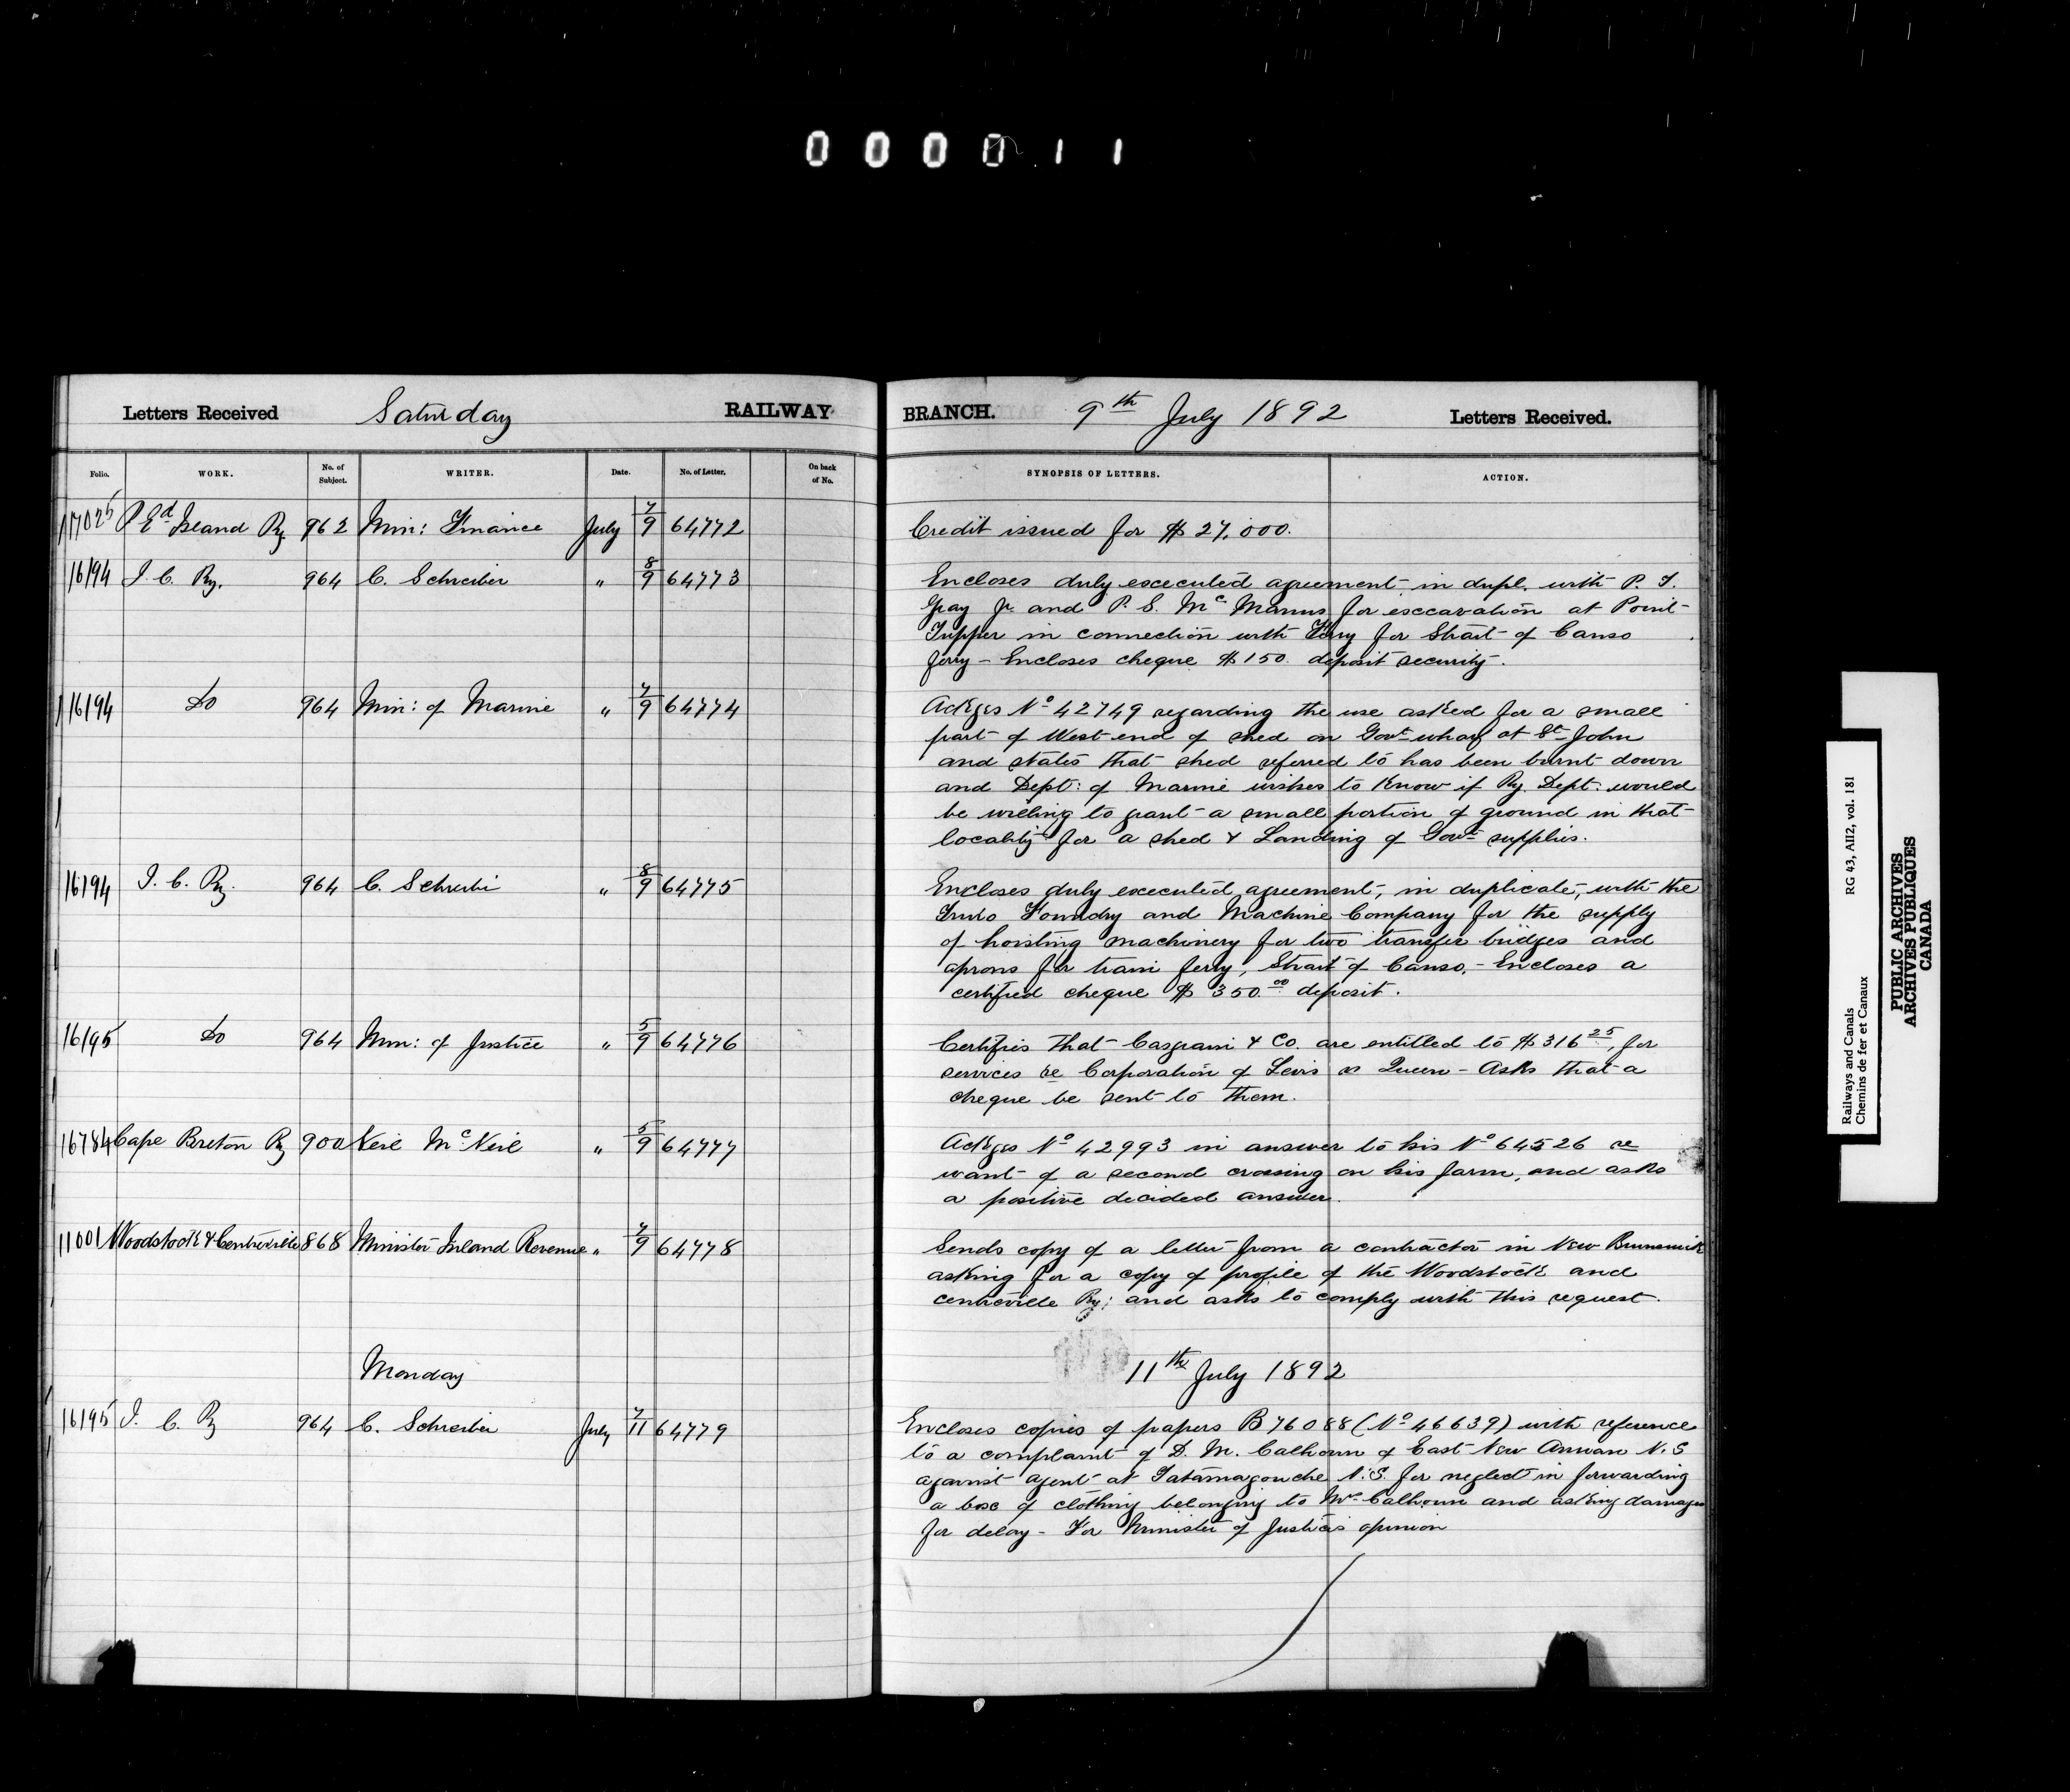 000011
Letters Received Saturday RAILWAY BRANCH. 9th July 1892 Letters Received.
Folio. WORK. No. of Subject. WRITER. Date. No. of Letter. On back of No. SYNOPSIS OF LETTERS. ACTION.
17025 P. Ed Island Ry. 962 Min: Finance July 7/9 64772 Credit issued for $27,000.
16194 I. C. Ry. 964 C. Schreiber " 8/9 64773 Encloses duly executed agreement in dupl. with P. T.
Gray Jr. and P. S. McManus for excavation at Point
Tupper in connection with Ferry for Strait of Canso
ferry - Encloses cheque $150. deposit security.
16194 Do 964 Min: of Marine " 7/9 64774 Ackges No 42749 regarding the use asked for a small
part of West end of shed on Govt wharf at St John
and states that shed referred to has been burnt down
and Dept: of Marine wishes to know if Ry. Dept. would
be willing to grant a small portion of ground in that
locality for a shed & Landing of Govt supplies.
16194 I. C. Ry. 964 C. Schreiber " 8/9 64775 Encloses duly executed agreement, in duplicate, with the
Truro Foundry and Machine Company for the supply
of hoisting machinery for two transfer bridges and
aprons for train ferry, Strait of Canso, - Encloses a
certified cheque $350.00 deposit.
16195 Do 964 Min: of Justice " 5/9 64776 Certifies that Casgrain & Co. are entitled to $316 25, for
services re Corporation of Levis vs Queen - Asks that a
cheque be sent to them.
16784 Cape Breton Ry 900 Neil McNeil " 5/9 64777 Ackges No 42993 in answer to his No 64526 re
want of a second crossing on his farm, and asks
a positive decided answer.
11001 Woodstock & Centreville 868 Minister Inland Revenue " 7/9 64778 Sends copy of a letter from a contractor in New Brunswick
asking for a copy of profile of the Woodstock and
Centreville Ry; and asks to comply with this request.
Monday 11th July 1892
16195 I. C. Ry 964 C. Schreiber July 7/11 64779 Encloses copies of papers B 76088 (No 46639) with reference
to a complaint of D. M. Calhoun of East New Annan N.S
against agent at Tatamagouche N.S. for neglect in forwarding
a box of clothing belonging to Mr Calhoun and asking damages
for delay - For Minister of Justice's opinion
Railways and Canals RG 43, AII2, vol. 181
Chemins de fer et Canaux
PUBLIC ARCHIVES
ARCHIVES PUBLIQUES
CANADA